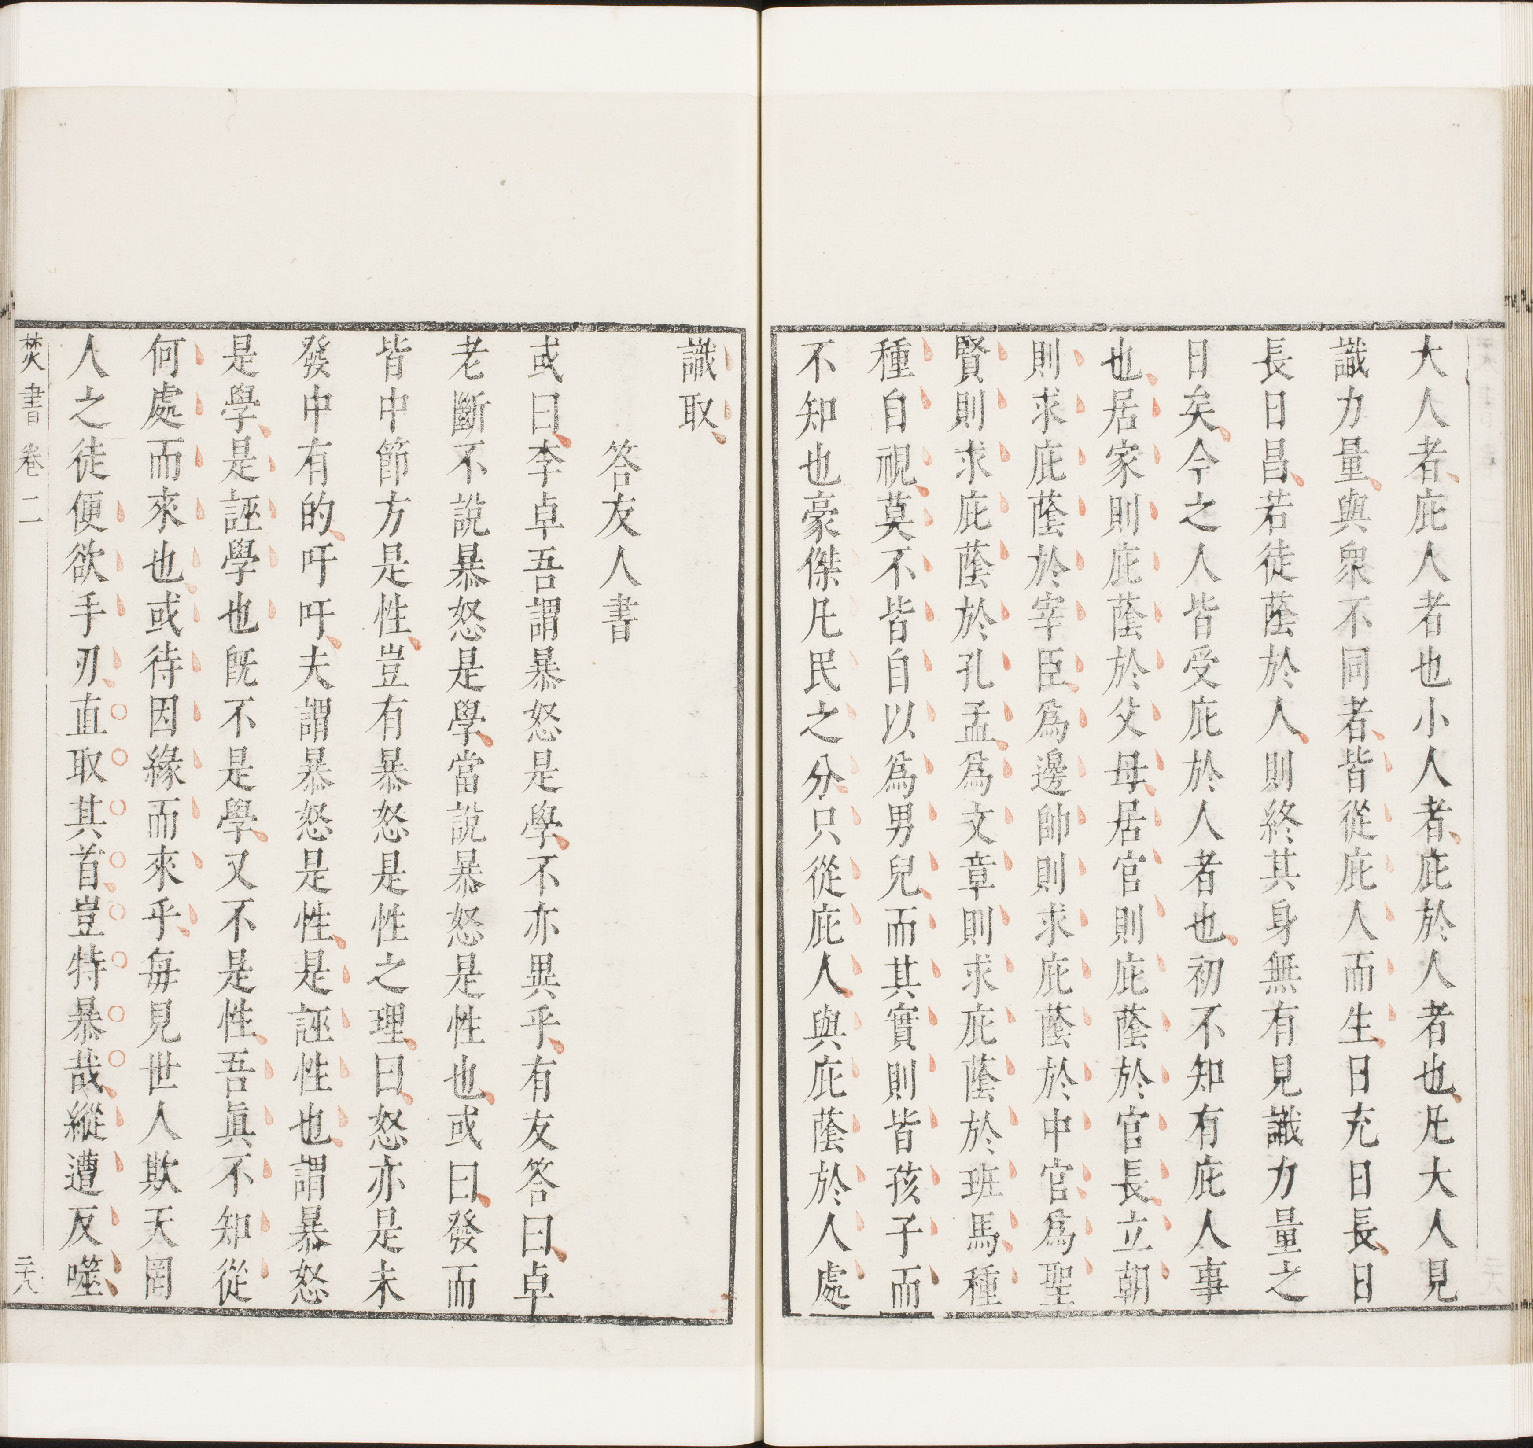 大人者庇人者也小人者庇於人者也凡大人見
識力量與衆不同者皆從庇人而生日充日長日
長日昌若徒蔭於人則終其身無有見識力量之
日矣今之人皆受庇於人者也初不知有庇人事
也居家則庇蔭於父母居官則庇蔭於官長立朝
則求庇蔭於宰臣爲邊帥則求庇蔭於中官爲聖
賢則求庇蔭於孔孟爲文章則求庇蔭於班馬種
種自視莫不皆自以爲男兒而其實則皆孩子而
不知也豪傑凡民之分只從庇人與庇蔭於人處
識取
答友人書
或曰李卓吾謂暴怒是學不亦異乎有友答曰卓
老斷不說暴怒是學當說暴怒是性也或曰發而
皆中節方是性豈有暴怒是性之理曰怒亦是未
發中有的吁吁夫謂暴怒是性是誣性也謂暴怒
是學是誣學也旣不是學又不是性吾眞不知從
何處而來也或待因緣而來乎每見世人欺天罔
人之徒便欲手刃直取其首豈特暴哉縱遭反噬
焚書 卷二 二十八